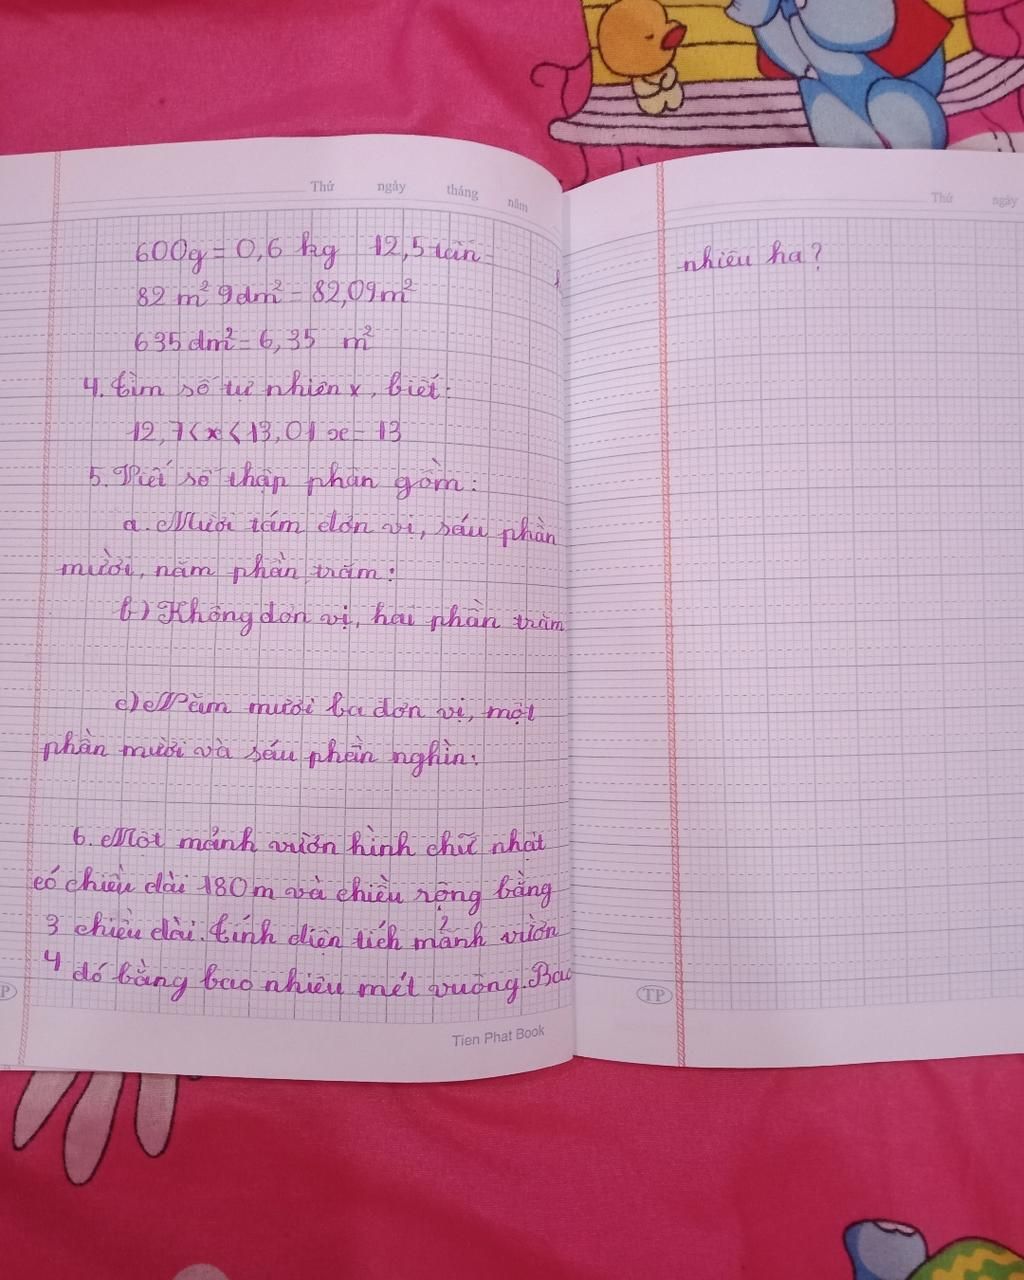 Thứ ngày tháng năm
600g = 0,6 kg 12,5 tấn
82 m² 9dm² = 82,09m²
635 dm² = 6,35 m²
4. tìm số tự nhiên x, biết:
12,7 < x < 13,01 x = 13
5. Viết số thập phân gồm:
a. Mười tám đơn vị, sáu phần
mười, năm phần trăm:
b) Không đơn vị, hai phần trăm
c) Năm mươi ba đơn vị, một
phần mười và sáu phần nghìn:
6. Một mảnh vườn hình chữ nhật
có chiều dài 180 m và chiều rộng bằng
3 chiều dài. tính diện tích mảnh vườn
4 đó bằng bao nhiêu mét vuông. Bao
TP
Tien Phat Book
Thứ ngày
nhiêu ha?
TP